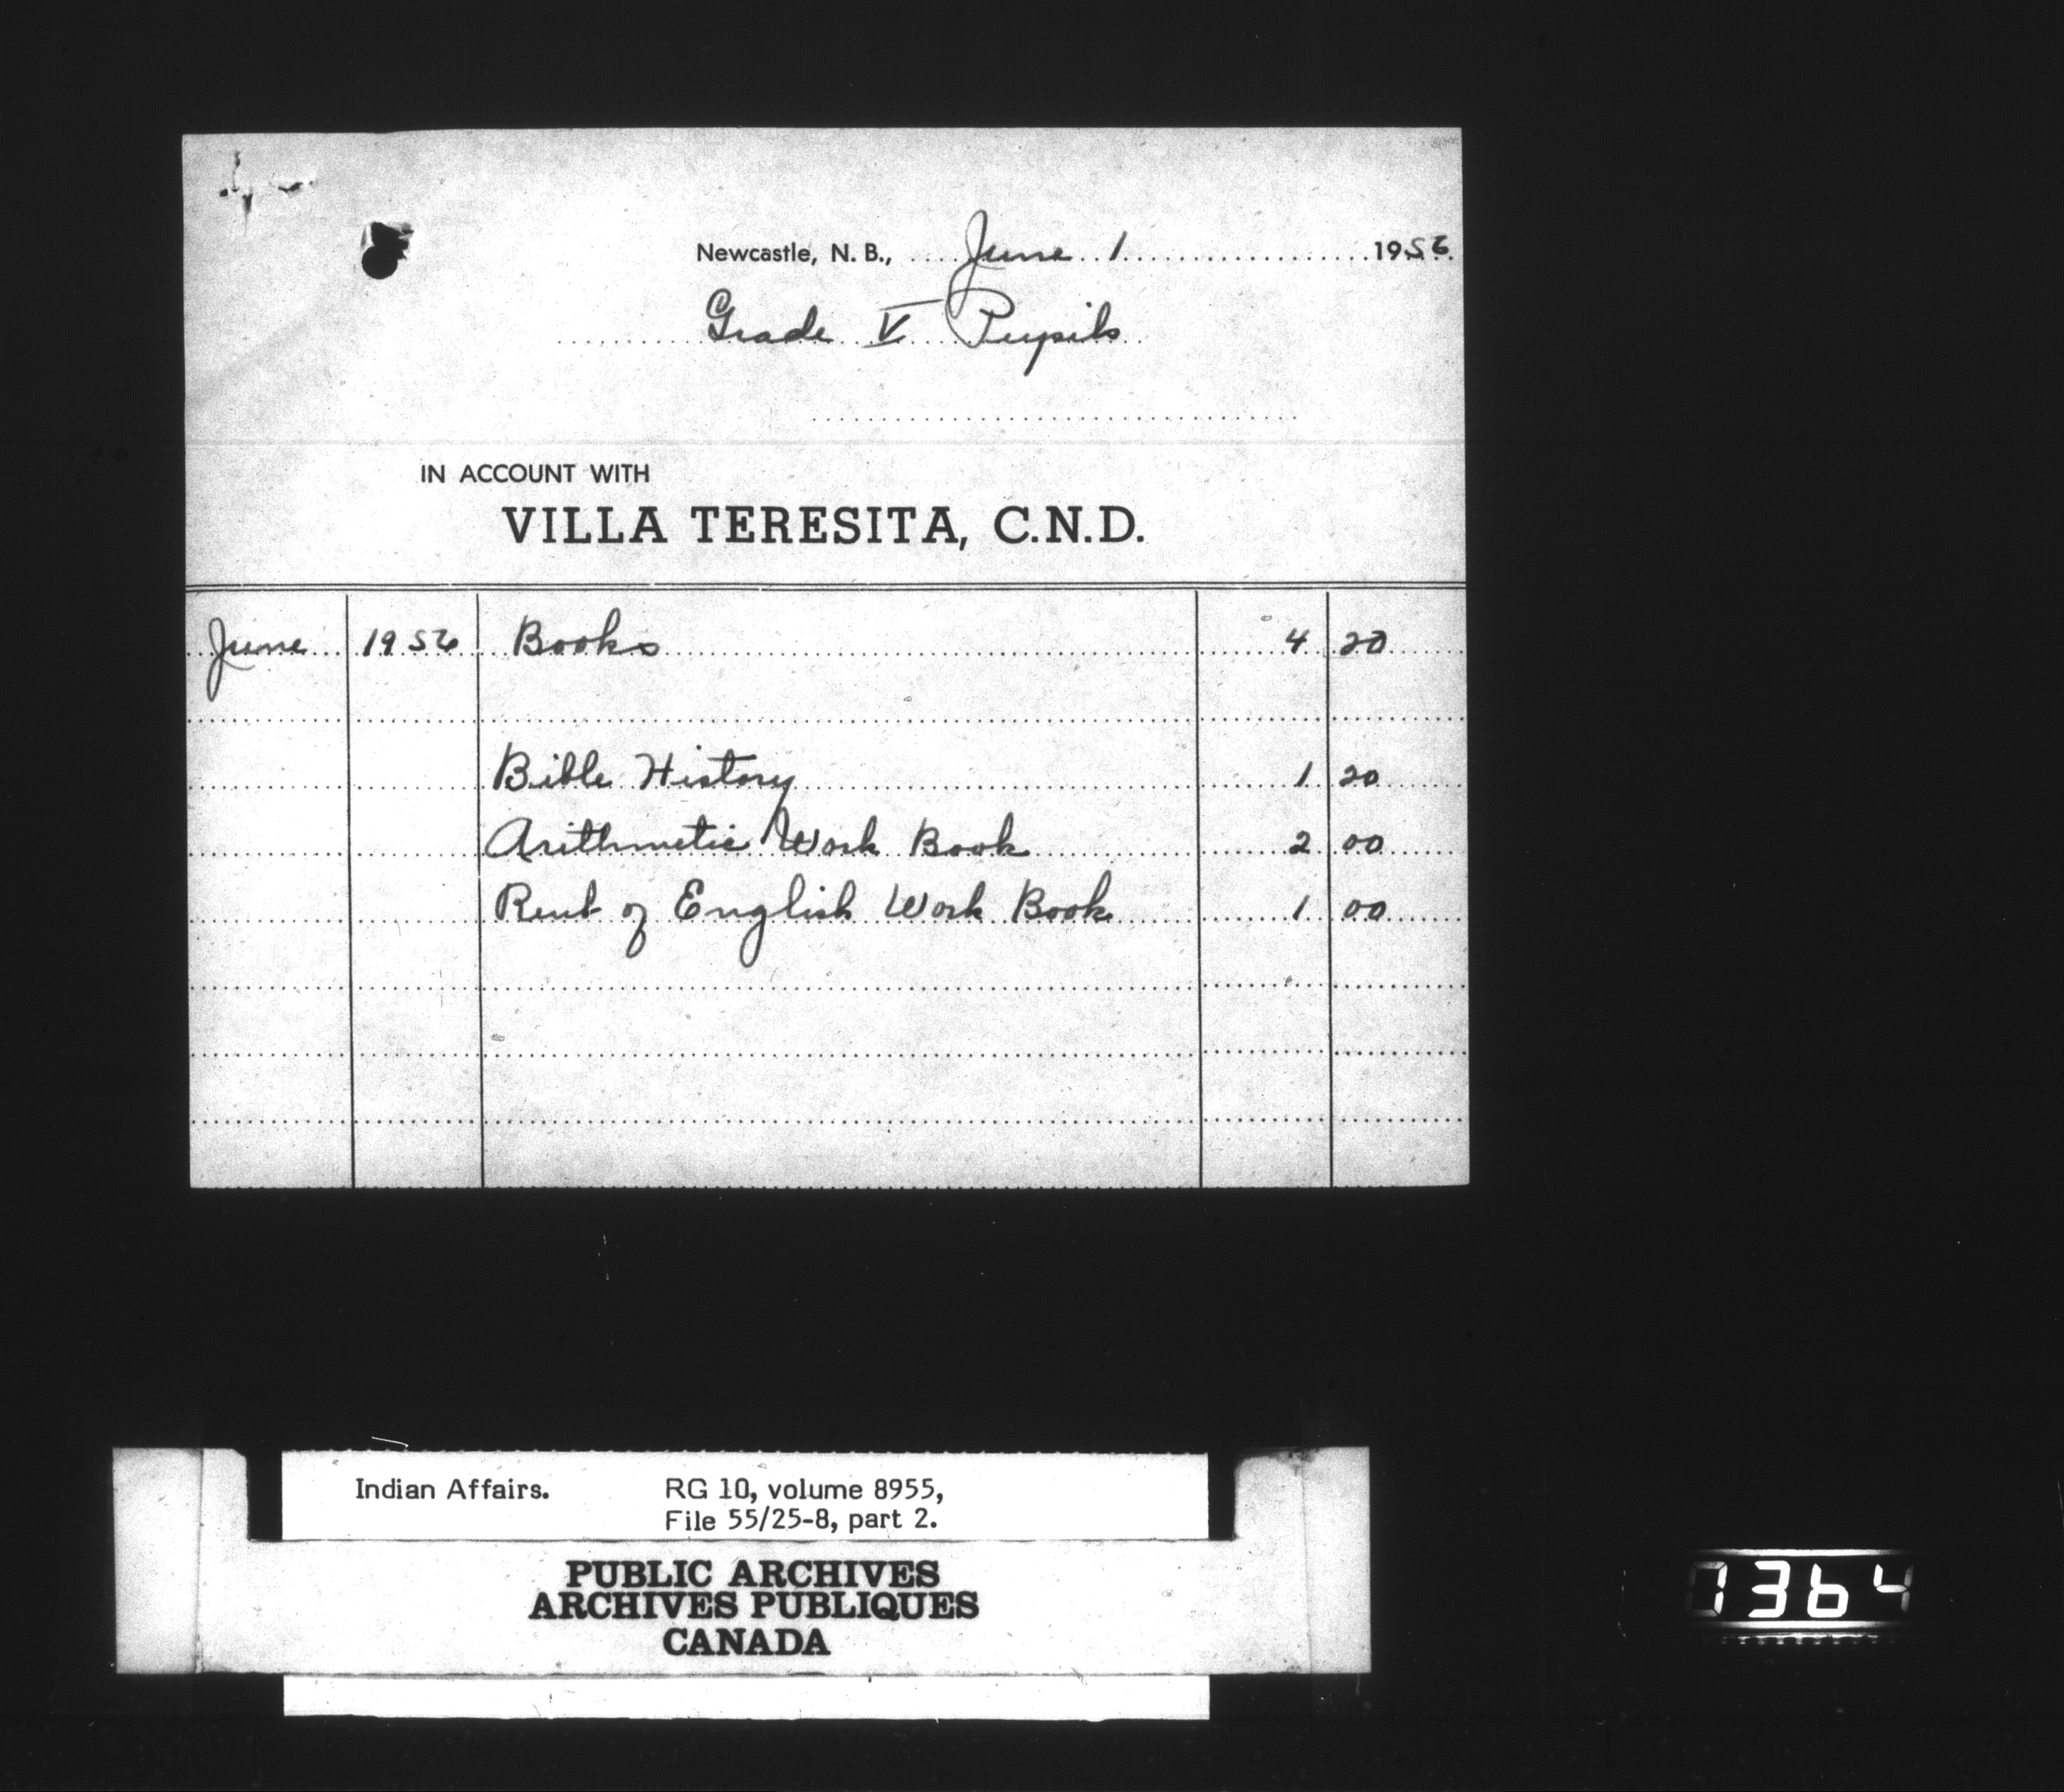 Newcastle, N. B., June 1 1956
Grade V Pupils
IN ACCOUNT WITH
VILLA TERESITA, C.N.D.
June 1956 Books 4 20
Bible History 1 20
Arithmetic Work Book 2 00
Rent of English Work Book 1 00
Indian Affairs. RG 10, volume 8955,
File 55/25-8, part 2.
PUBLIC ARCHIVES
ARCHIVES PUBLIQUES
CANADA
7364